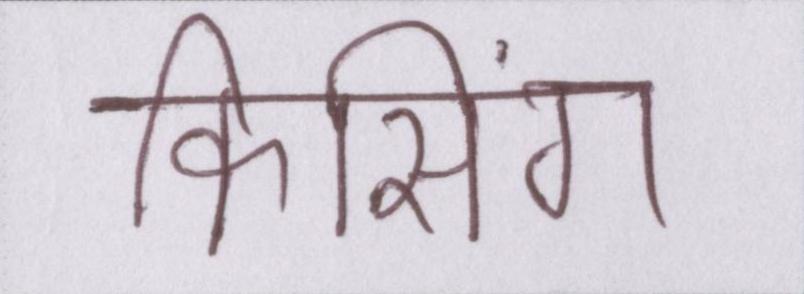 किसिंग